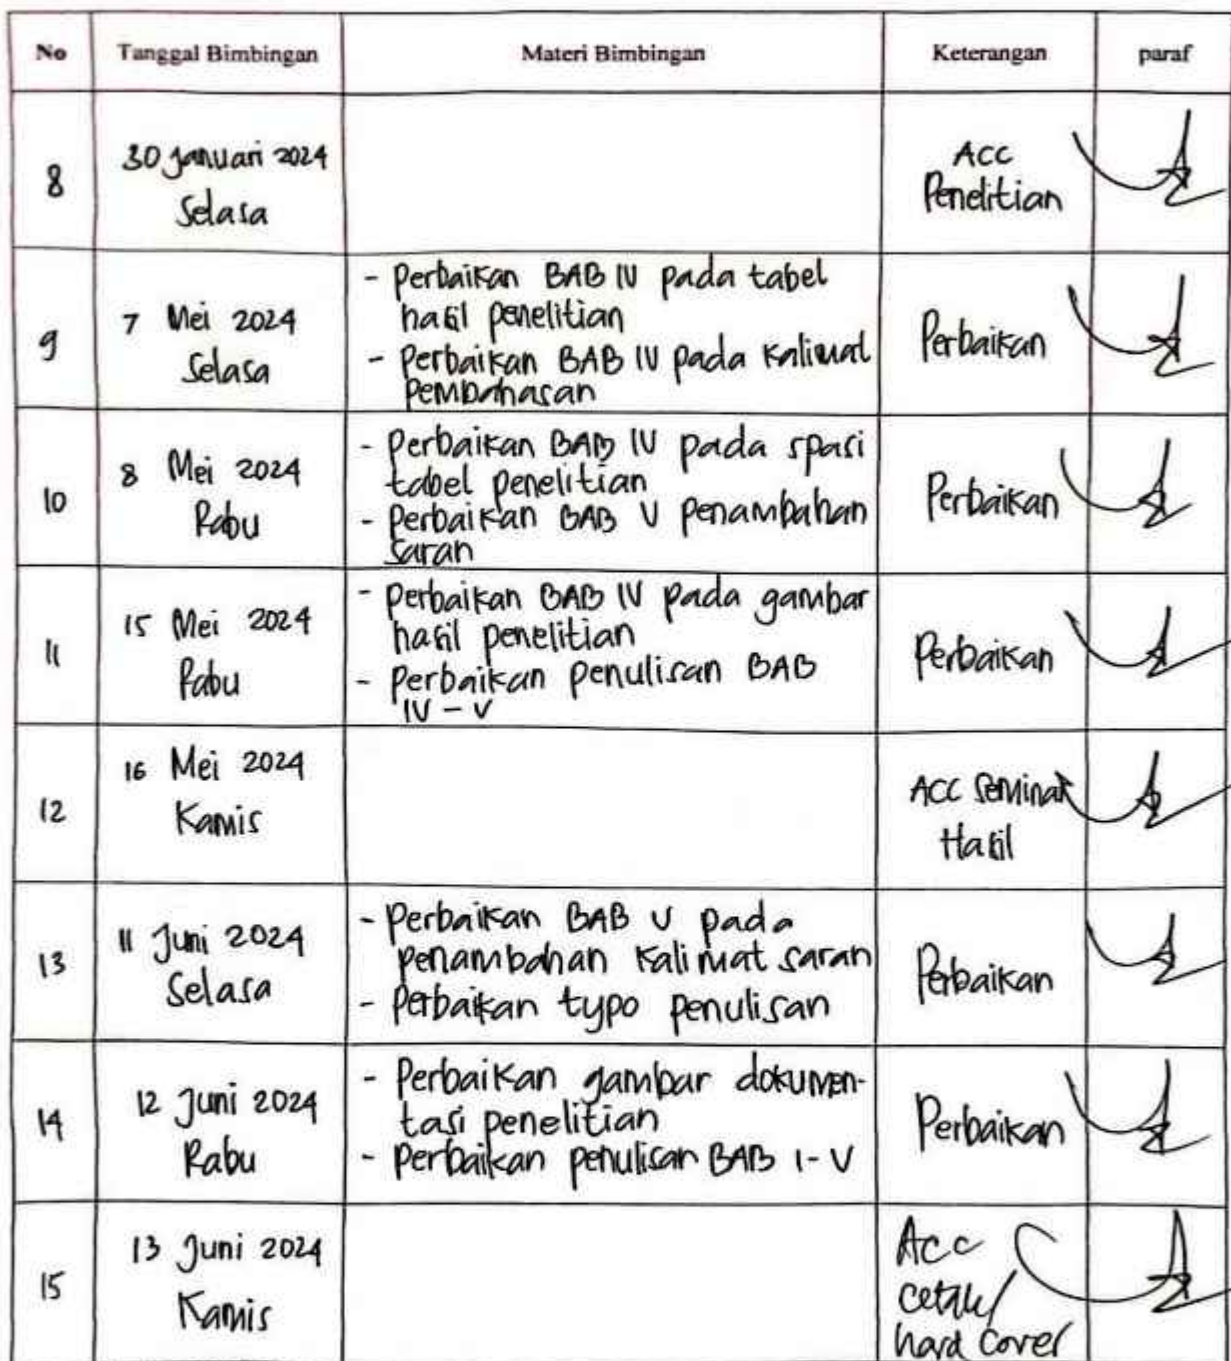 No Tanggal Bimbingan Materi Bimbingan Keterangan paraf
8
30 Januari 2024
Selasa
ACC
Penelitian
9
7 Mei 2024
Selasa
- Perbaikan BAB IV pada tabel
hasil penelitian
- Perbaikan BAB IV pada kalimat
Pembahasan
Perbaikan
10
8 Mei 2024
Rabu
- Perbaikan BAB IV pada spasi
tabel penelitian
- Perbaikan BAB V penambahan
saran
Perbaikan
11
15 Mei 2024
Rabu
- Perbaikan BAB IV pada gambar
hasil penelitian
- Perbaikan penulisan BAB
IV - V
Perbaikan
12
16 Mei 2024
Kamis
ACC Seminar
Hasil
13
11 Juni 2024
Selasa
- Perbaikan BAB V pada
penambahan kalimat saran
- Perbaikan typo penulisan
Perbaikan
14
12 Juni 2024
Rabu
- Perbaikan gambar dokumen-
tasi penelitian
- Perbaikan penulisan BAB I - V
Perbaikan
15
13 Juni 2024
Kamis
Acc
cetak/
hard cover